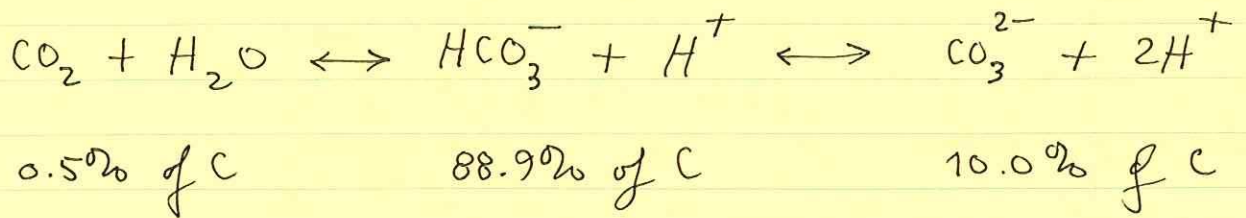 CO₂ + H₂O ↔ HCO₃⁻ + H⁺ ↔ CO₃²⁻ + 2H⁺
0.5% of C 88.9% of C 10.0% of C